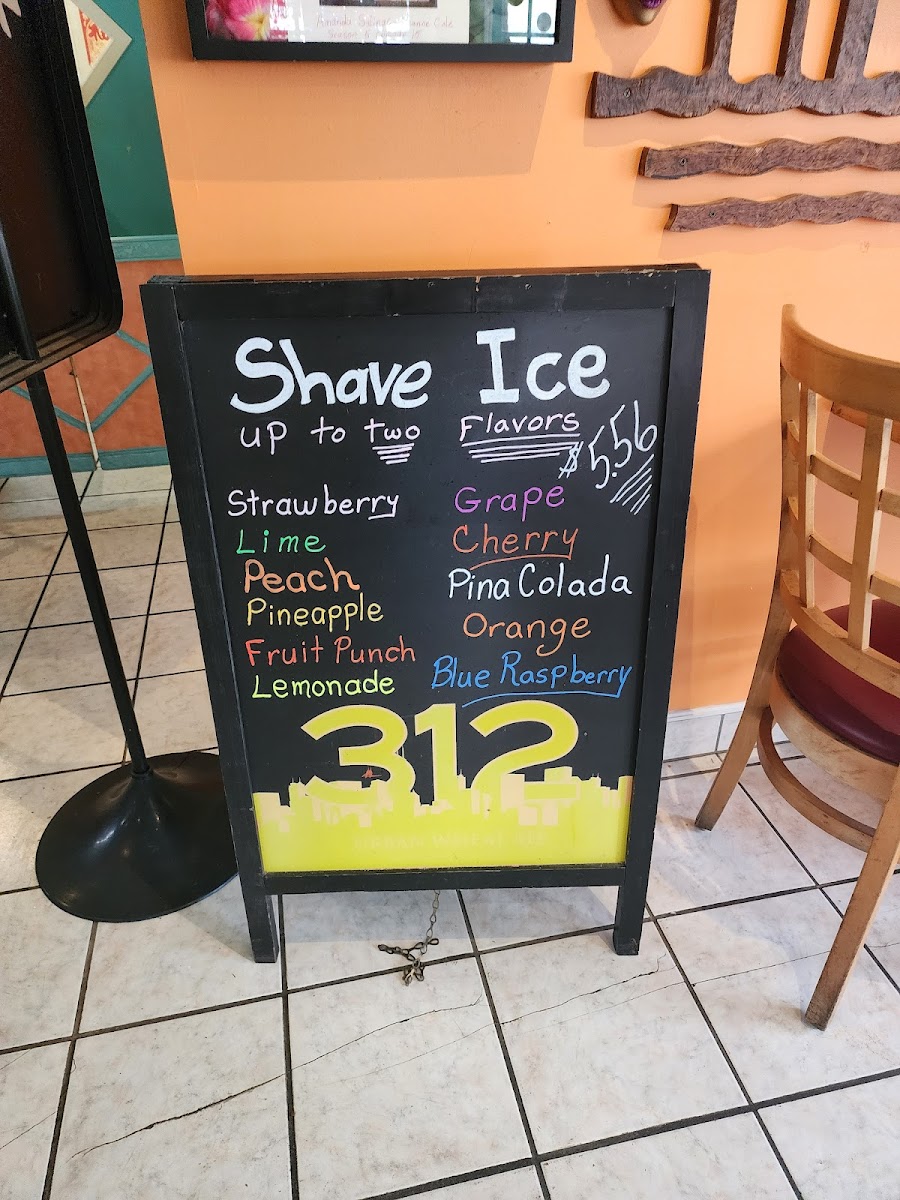 Shave Ice
up to two Flavors
$5.56
Strawberry
Lime
Peach
Pineapple
Fruit Punch
Lemonade
Grape
Cherry
Pina Colada
Orange
Blue Raspberry
312
URBAN WHEAT ALE